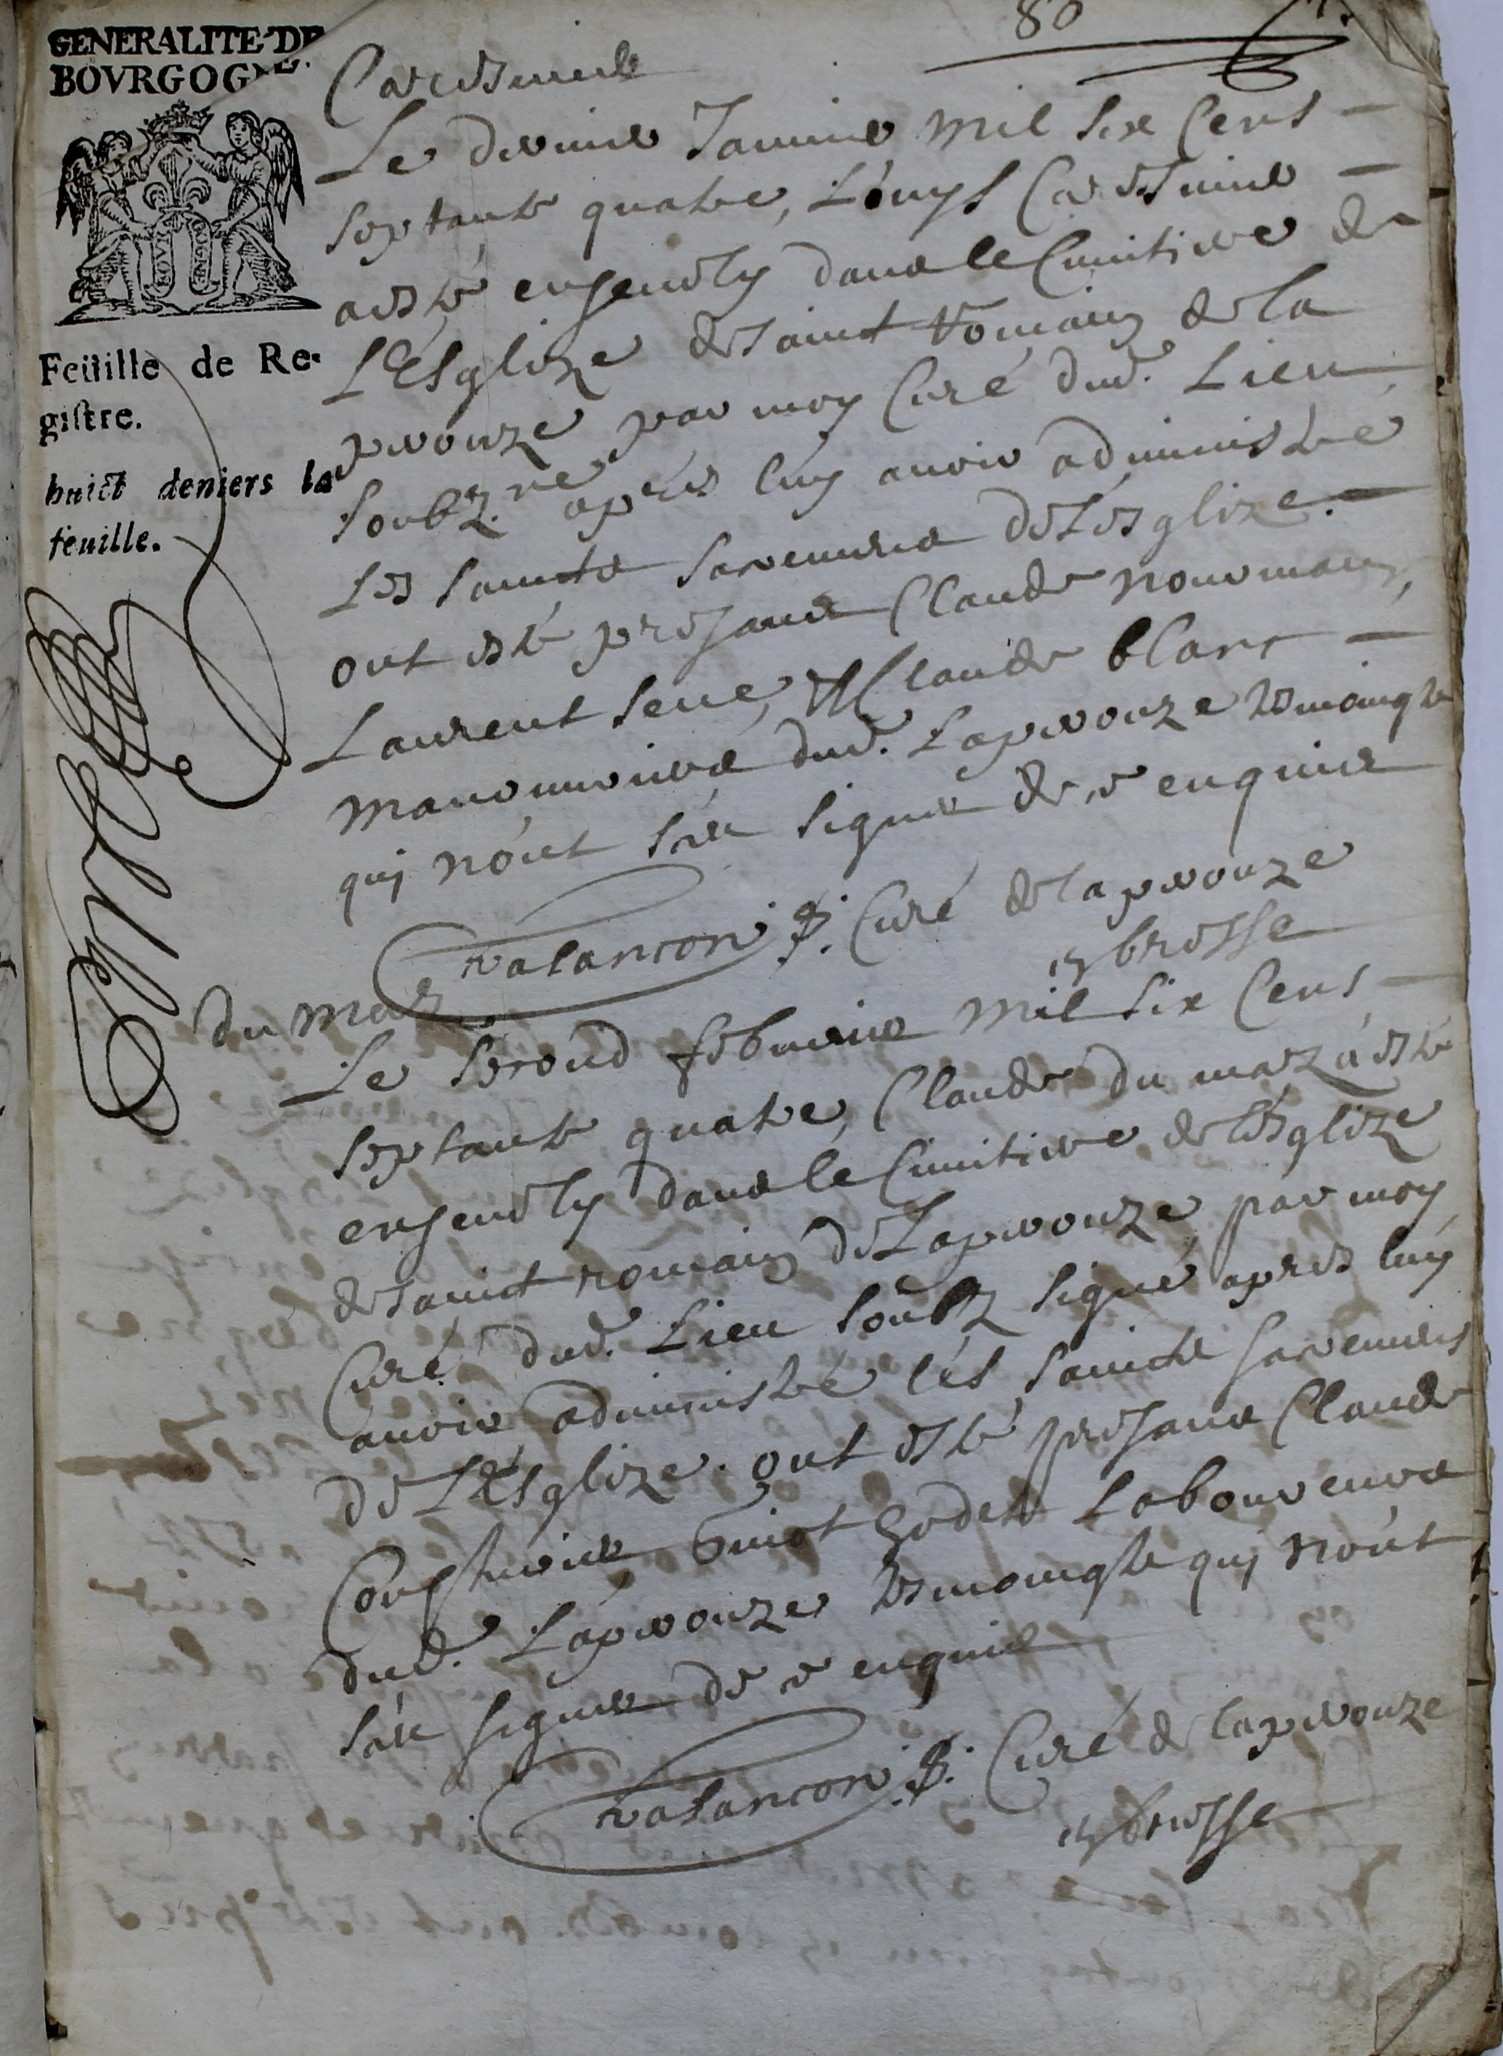 80
GENERALITE DE
BOVRGOGNE.
Feüille de Re-
gistre.
huict deniers la
feuille.
Le dernier Janvier Mil six Cens
septante quatre, Louys
a esté ensevely dans le Cimitiere de
L'Esglize de Sainct Romain de La
perouze par moy Curé dud. Lieu
soubz.né apres luy avoir administré
Les saincts sacremens de L'Esglize.
ont esté presans Claude
Laurent Seve, et Claude blanc
dud. Laperouze tesmoingts
qui n'ont sceu signer de ce enquis
Valancon p. Curé de laperouze
en bresse
du maz
Le second febvrier Mil six Cens
septante quatre, Claude du maz a esté
ensevely dans le Cimitiere de l'Esglize
de Sainct romain de Laperouze, par moy
Curé dud. Lieu soubz signé apres luy
avoir administré les saincts sacremens
de L'Esglize. ont esté presans Claude
Guiot Laboureurs
dud. Laperouze tesmoingts qui n'ont
sceu signer de ce enquis
Valancon p. Curé de laperouze
en bresse